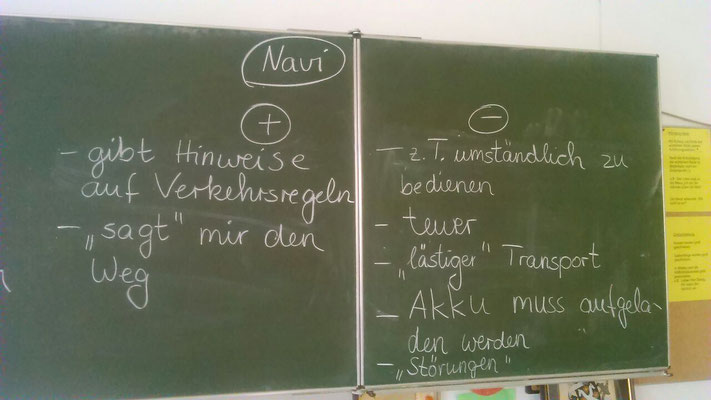 Navi
+
- gibt Hinweise
auf Verkehrsregeln
- „sagt" mir den
Weg
-
- z.T. umständlich zu
bedienen
- teuer
- „lästiger" Transport
- Akku muss aufgela-
den werden
- „Störungen"